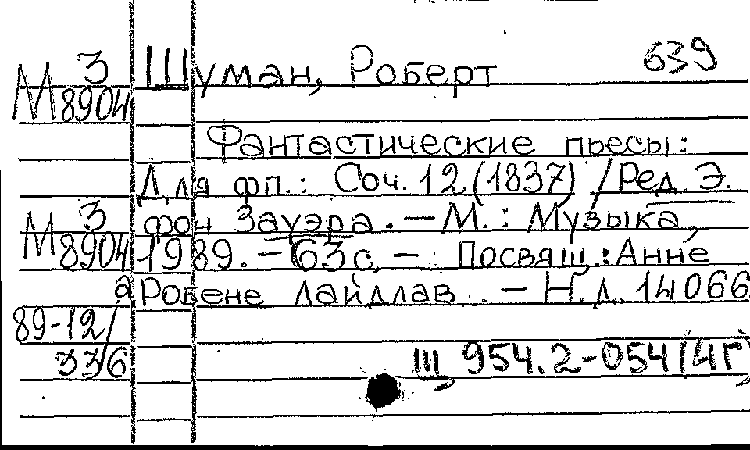 З Шуман, Роберт 639
М 8904
Фантастические пьесы:
Для фп.: Соч. 12 (1837) / Ред. Э.
З фон Зауэра. — М.: Музыка,
М 8904 1989. — 63 с. — Посвящ.: Анне
а Робене Лайдлав. — Н.д. 14066
89-12/
336 Щ 954.2-054(4Г)